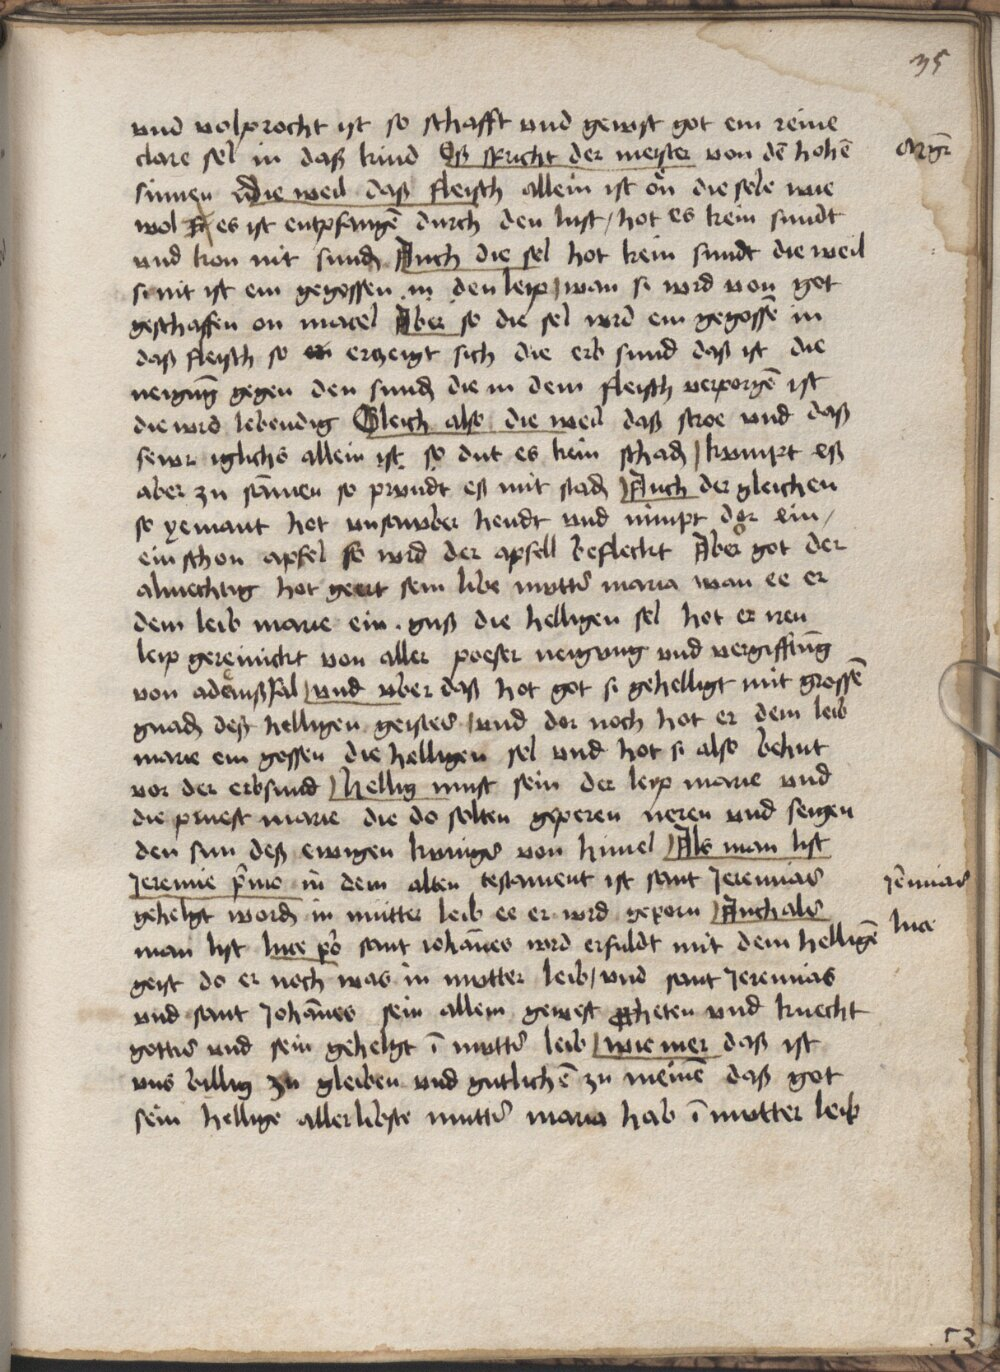 35
vnd volprocht ist so schafft vnd gewst got ein reine
clare sel in daß kind Eß spricht der meister von dē hohē
sinnen Die weil daß fleisch allein ist on die sele wie
wol es ist entpfangē durch den lust / hot es kein sundt
vnd kon nit sundē Auch die sel hot kein sundt die weil
si nit ist ein gegossen in den leip wan si wird von got
geschaffen on macel Aber so die sel wrd ein gegossē in
daß fleisch so erzeigt sich die erb sund daß ist die
neigūg gegen den sundē die in dem fleisch verporgē ist
die wrd lebendig Gleich also die weil daß stroe vnd daß
fewr iglichs allein ist so dut es kein schadē kumpt eß
aber zu sāmen so prvndt eß mit stadē Auch der gleichen
so yemant het vnsawber hendt vnd nimpt dor ein /
ein schon apfel so wrd der apfell befleckt Aber got der
almechtig hot geert sein libe mutter maria wan ee er
dem leib marie ein guß die helligen sel hot er iren
leip gereinickt von aller poeser neigung vnd vergifftūg
von adams fal vnd vber daß hot got si gehelligt mit grossē
gnadē deß helligen geistes vnd dor noch hot er dem leib
marie ein gossen die helligen sel vnd hot si also behut
vor der erbsund hellig must sein der leip marie vnd
die prust marie die do solten geperen neren vnd seigen
den sun deß ewigen kunigs von himel Als man list
Jeremie p̄mo in dem alten testament ist sant Jeremias
gehelgt wordē in mutter leib ee er wrd geporn Auch als
man list luce p̄o sant iohānes wrd erfuldt mit dem helligē
geist do er noch was in mutter leib / vnd sant Jeremias
vnd sant Johānes sein allein gewest pheten vnd knecht
gottes vnd sein gehelgt ī mutter leib wie mer daß ist
vns billig zu gleiben vnd gutlichē zu meinē daß got
sein hellige aller libste mutter maria hab ī mutter leib
Jēmias
luce
53